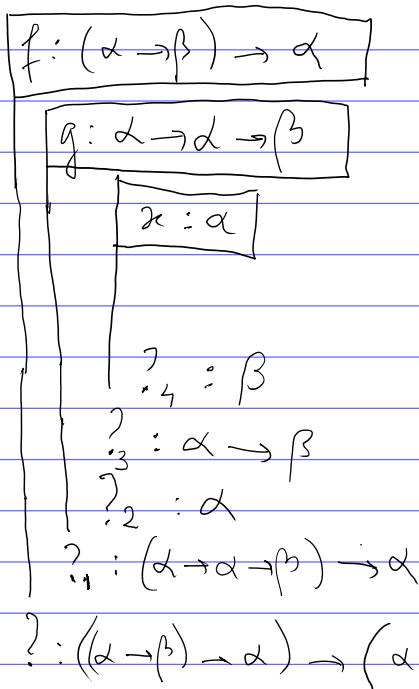 f : (α → β) → α
g : α → α → β
x : α
?₄ : β
?₃ : α → β
?₂ : α
?₁ : (α → α → β) → α
? : ((α → β) → α) → (α